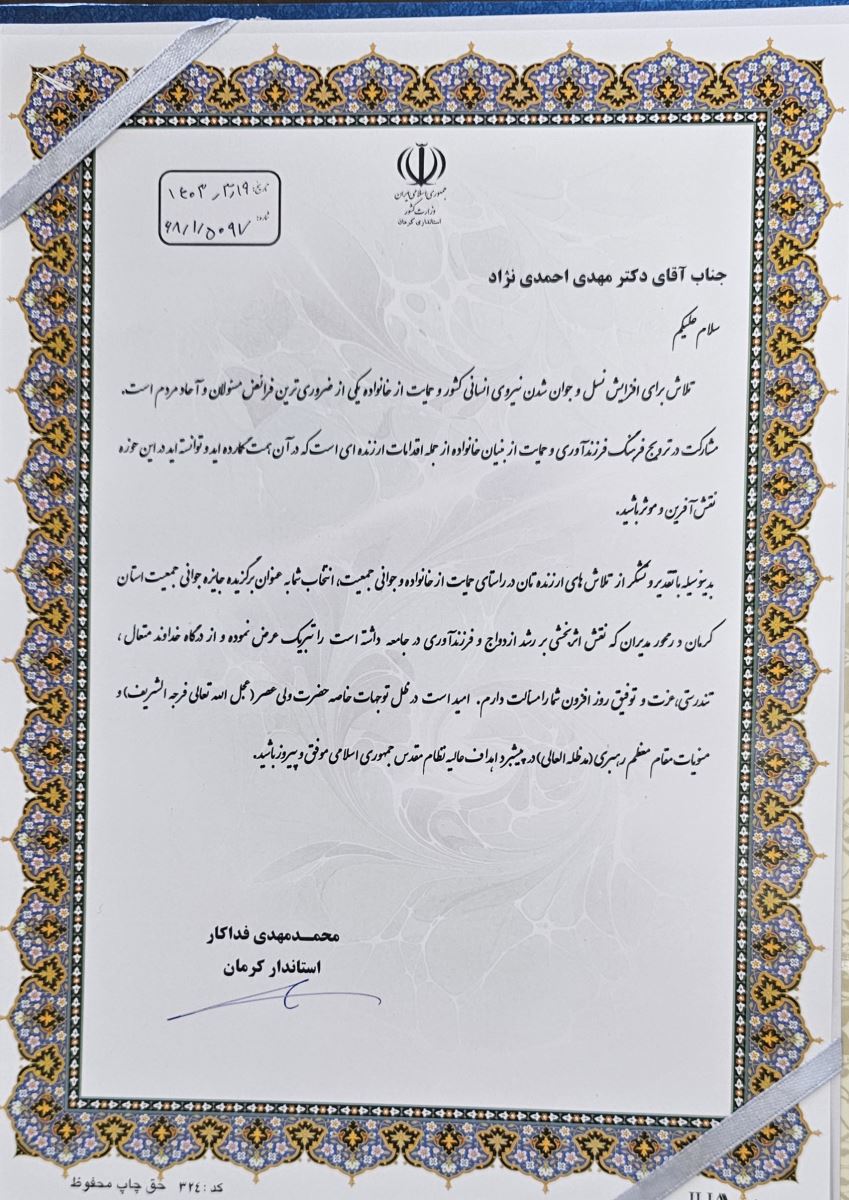 جمهوری اسلامی ایران
وزارت کشور
استانداری کرمان
تاریخ: ۱۴۰۳٫۳٫۱۹
شماره: ۶۸/۱/۵۰۹۷
جناب آقای دکتر مهدی احمدی نژاد
سلام علیکم
تلاش برای افزایش نسل و جوان شدن نیروی انسانی کشور و حمایت از خانواده یکی از ضروری ترین فرائض مسئولان و آحاد مردم است.
مشارکت در ترویج فرهنگ فرزندآوری و حمایت از بنیان خانواده از جمله اقدامات ارزنده ای است که در آن همت گمارده اید و توانسته اید در این حوزه
نقش آفرین و موثر باشید.
بدینوسیله با تقدیر و تشکر از تلاش های ارزنده تان در راستای حمایت از خانواده و جوانی جمعیت، انتخاب شما به عنوان برگزیده جایزه جوانی جمعیت استان
کرمان در محور مدیران که نقش اثربخشی بر رشد ازدواج و فرزندآوری در جامعه داشته است را تبریک عرض نموده و از درگاه خداوند متعال ،
تندرستی، عزت و توفیق روز افزون شما را مسالت دارم. امید است در ظل توجهات خاصه حضرت ولی عصر (عجل الله تعالی فرجه الشریف) و
منویات مقام معظم رهبری (مدظله العالی) در پیشبرد اهداف عالیه نظام مقدس جمهوری اسلامی موفق و پیروز باشید.
محمدمهدی فداکار
استاندار کرمان
کد: ۳۲۴ حق چاپ محفوظ